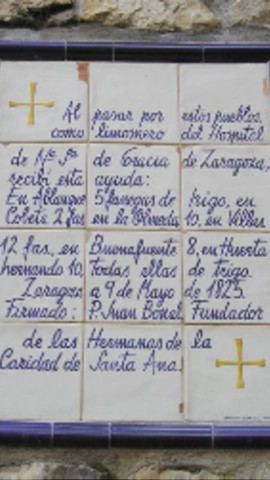 Al pasar por estos pueblos
como limosnero del Hospital
de Nª Sª de Gracia de Zaragoza,
recibí esta ayuda:
En Ablanque 5 fanegas de trigo, en
Cobeta 2 fas, en la Olmeda 10, en Villar
12 fas, en Buenafuente 8, en Huerta
hernando 10, todas ellas de trigo.
Zaragoza a 9 de Mayo de 1825.
Firmado: P. Juan Bonal Fundador
de las Hermanas de la
Caridad de Santa Ana.